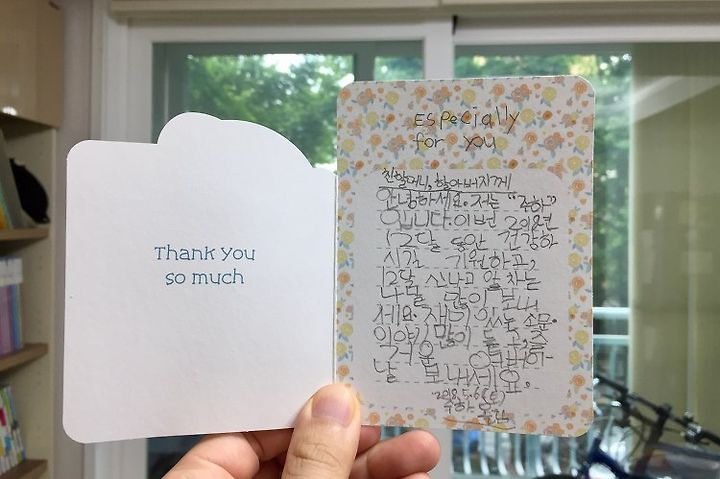 Thank You
so much
Especially
for you
친할머니, 할아버지께
안녕하세요. 저는 "주하"
입니다. 이번 2018년
12달 동안 건강하
시길 기원하고,
12달 신나고 알차는
나날 많이 보내
세요. 재미있는 소문.
이야기 많이 듣고, 즐
거운 어버이
날 보내세요.
2018.5.6
주하